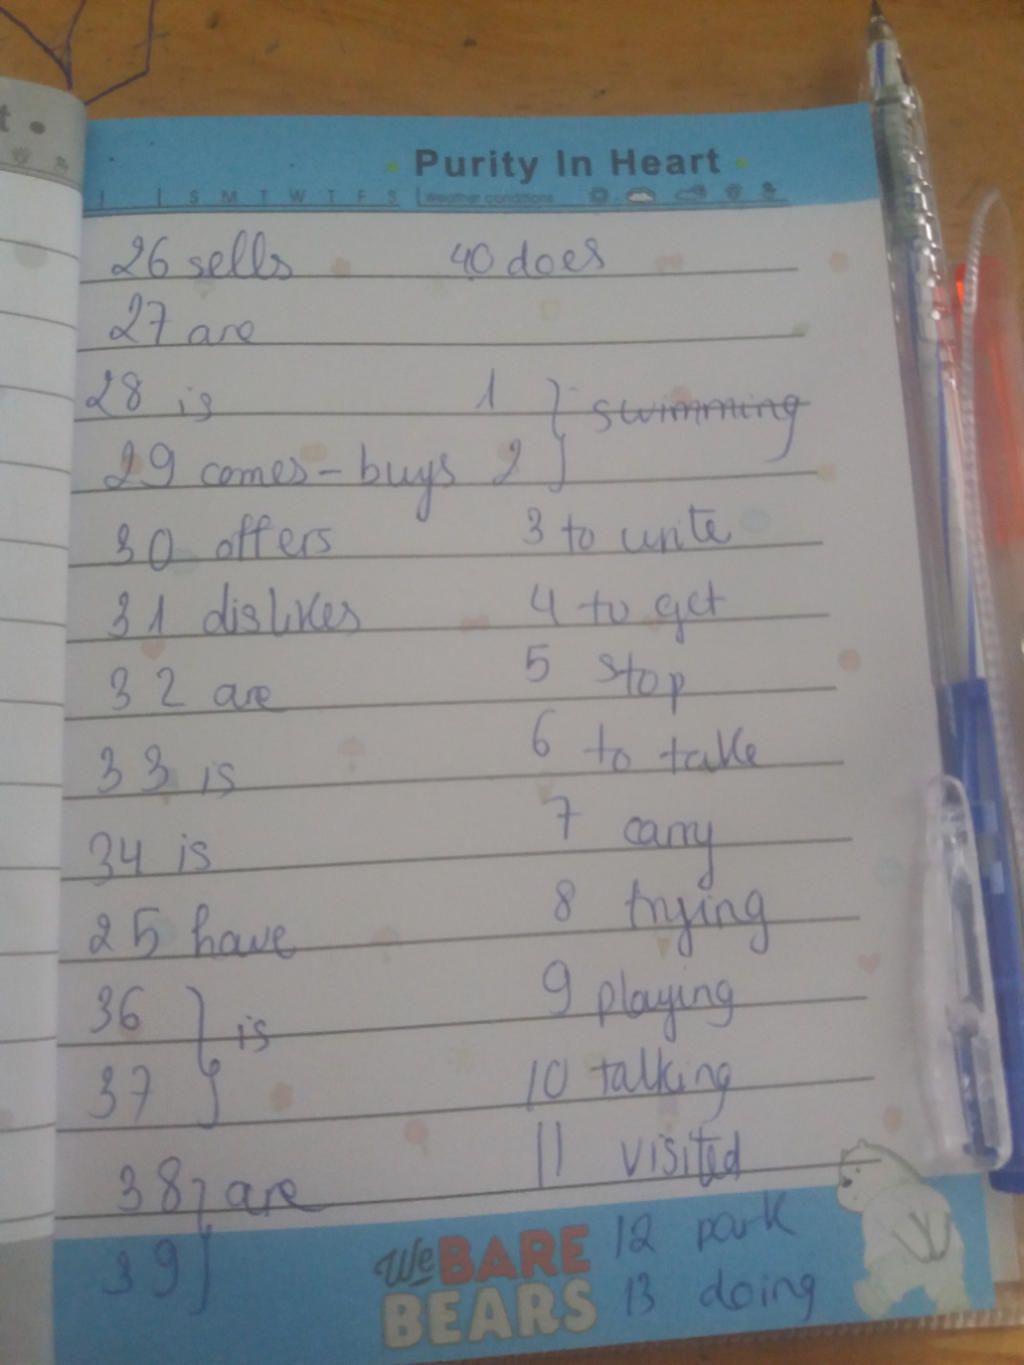 t •
Purity In Heart
S M T W T F S Weather conditions
26 sells 40 does
27 are
28 is 1 } swimming
29 comes - buys 2
30 offers 3 to write
31 dislikes 4 to get
32 are 5 stop
33 is 6 to take
34 is 7 carry
25 have 8 trying
36 } is 9 playing
37 10 talking
38 } are 11 visited
39 We BARE BEARS 12 park
13 doing